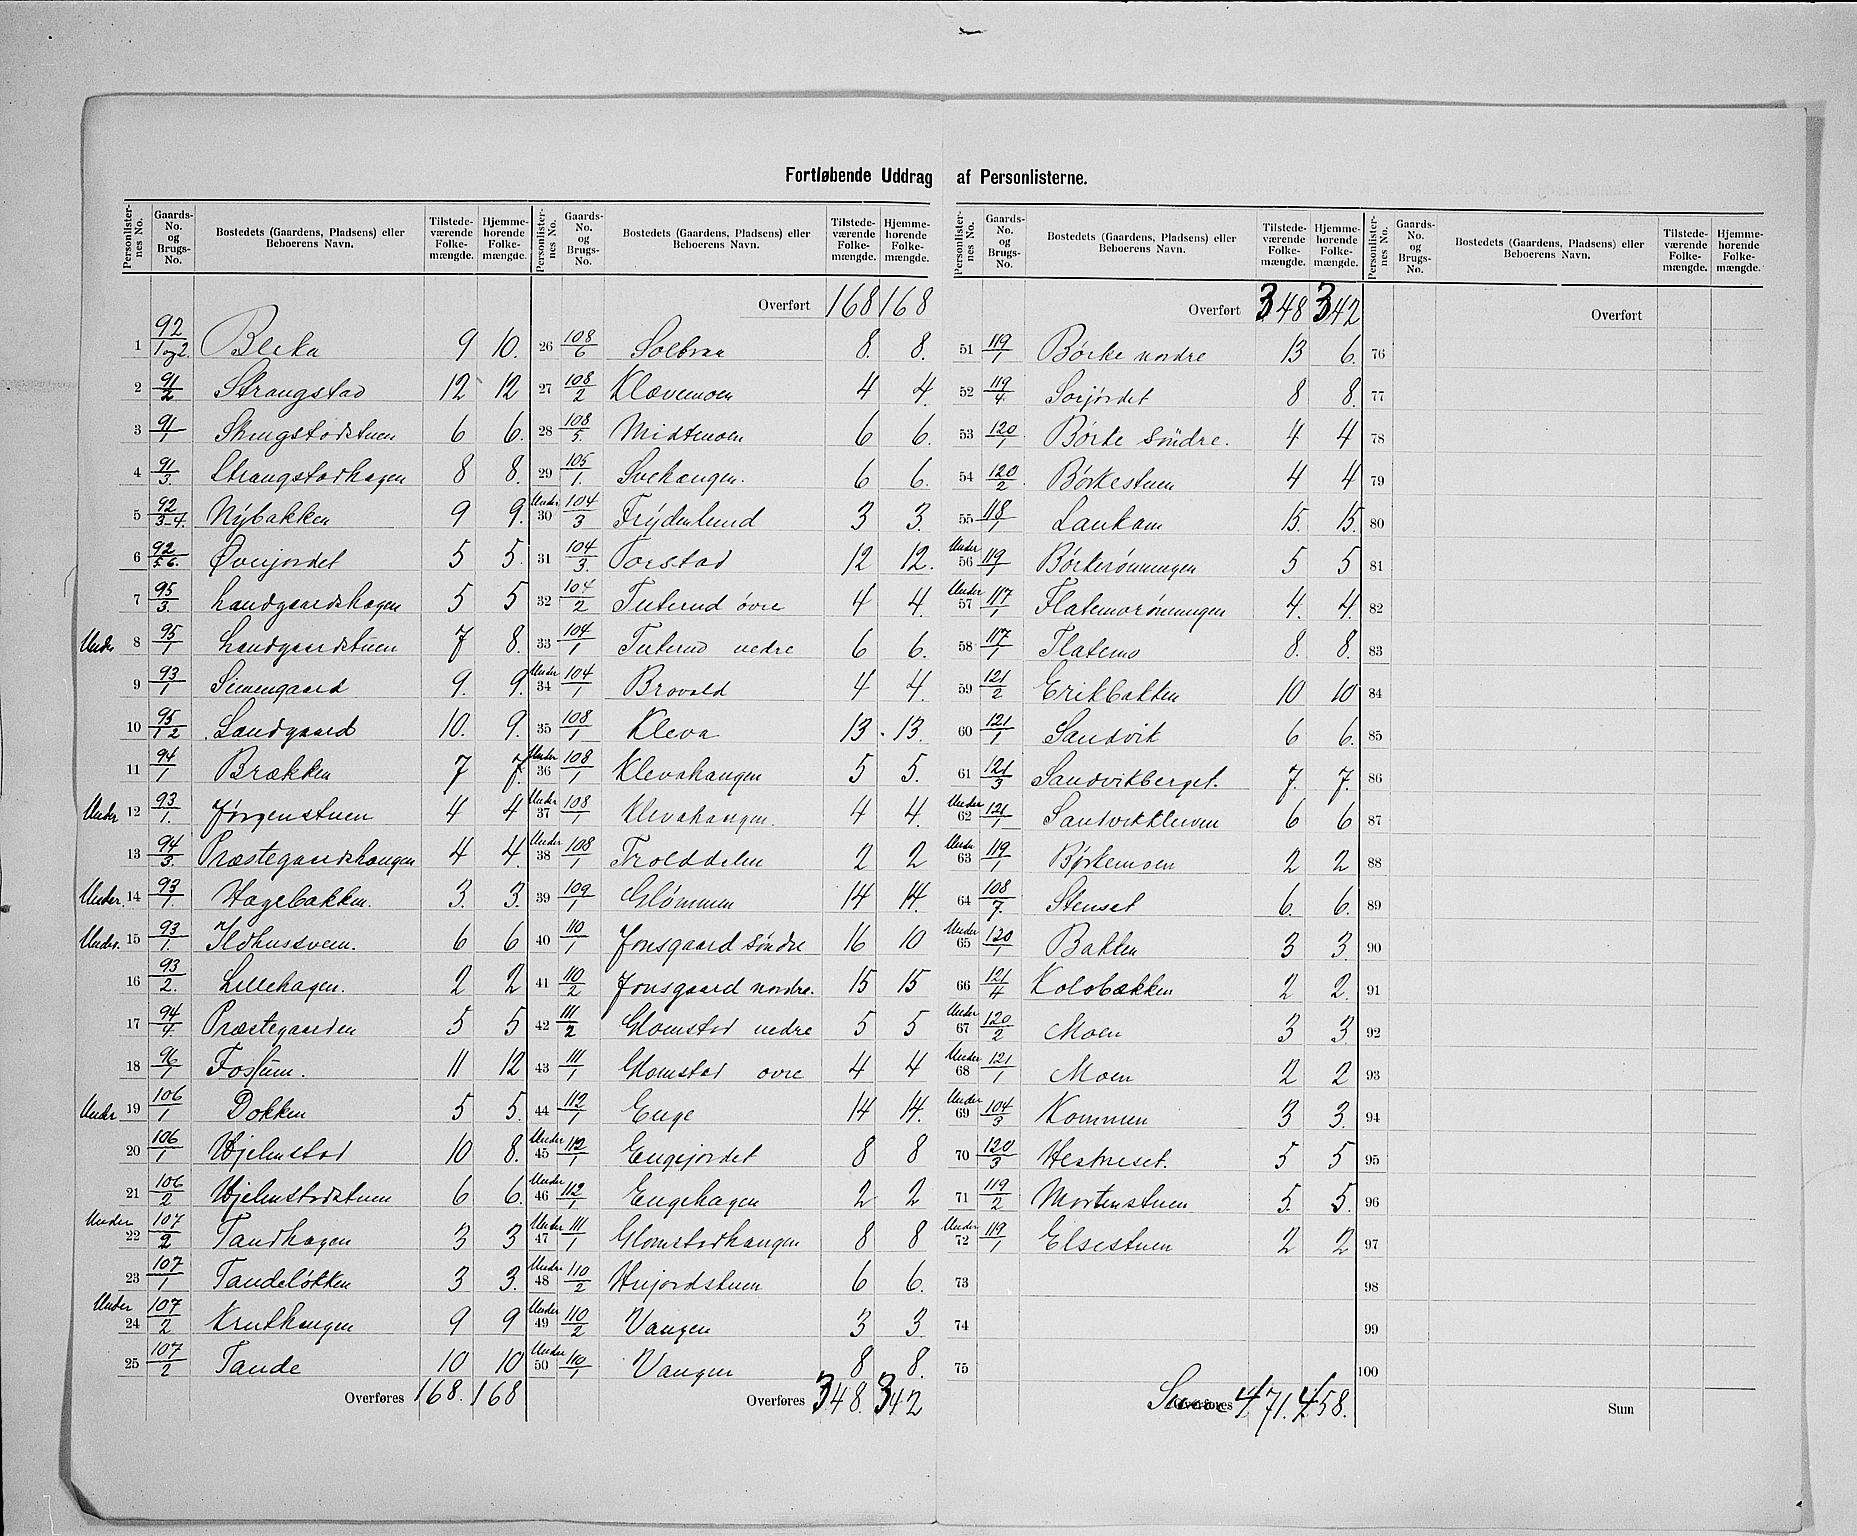 Fortløbende Uddrag af Personlisterne.
Personlister-nes No. | Gaards-No. og Brugs-No. | Bostedets (Gaardens, Pladsens) eller Beboerens Navn. | Tilstede-værende Folke-mængde. | Hjemme-hørende Folke-mængde.
1 92/1og2. Bleka 9 10.
2 91/2 Strangstad 12 12
3 91/1 6 6.
4 91/3. Strangstadhagen 8 8.
5 92/3-4. Nybakken 9 9.
6 92/5-6. Øverjordet 5 5.
7 95/3. Landgaardshagen 5 5
Under 8 95/1 Landgaardstuen 7 8.
9 93/1 Simengaard 9. 9.
10 95/1-2 Landgaard 10. 9.
11 94/1 Brækken 7 7.
Under 12 93/1. Jørgenstuen 4 4
13 94/3. Præstegaardshaugen 4 4.
Under. 14 93/1. Hagebakken. 3. 3.
Under. 15 93/1. 6 6
16 93/2. Lillehagen. 2 2
17 94/4. Præstegaarden 5 5
18 96/1 Fossum. 11 12
Under 19 106/1 Dokken 5 5.
20 106/1 Hjelmstad 10 8.
21 106/2 Hjelmstadstuen 6 6.
Under 22 107/2 Tandhagen 3 3
23 107/1 Tandeløkken 3 3.
Under 24 107/2 Kruthaugen 9 9
25 107/2 Tande 10 10
Overføres 168. 168
Overført 168 168
26 108/6 Solbraa 8. 8.
27 108/2 Klævemoen 4 4.
28 108/5. Midtmoen 6 6.
29 105/1. Svehaugen. 6 6.
Under 30 104/3 Frydenlund 3 3.
31 104/3. Torstad 12 12.
32 104/2 Tuterud øvre 4 4.
33 104/1 Tuterud nedre 6 6.
Under 34 104/1 Brovold 4 4.
35 108/1 Kleva 13. 13.
Under 36 108/1 Klevahaugen 5 5.
Under 37 108/1 Klevahaugen. 4 4.
Under 38 108/1 Trolddalen 2 2
39 109/1 Glømmen 14 14.
40 110/1 Jonsgaard söndre 16 10
41 110/2 Jonsgaard nordre. 15 15
42 111/2 Glomstad nedre 5 5
43 111/1 Glomstad øvre 4 4
44 112/1 Enge 14 14.
Under 45 112/1 Engejordet 8 8
Under 46 112/1 Engehagen 2 2
Under 47 111/1 Glomstadhaugen 8 8
Under 48 110/2 6 6.
Under 49 110/2 Vangen 3 3.
Under 50 110/1 Vangen 8 8.
Overføres 348. 342
Overført 348 342
51 119/1 Børke nordre 13 6.
52 119/4. Sorjordet 8 8.
53 120/1 Børke söndre. 4 4
54 120/2 Børkestuen 4 4
55 118/1 Laukam 15. 15.
Under 56 119/1 Børkerønningen 5 5
Under 57 117/1 Flatemorønningen 4. 4.
58 117/1 Flatemo 8. 8.
59 121/2 Erikbakken 10 10
60 121/1 Sandvik 6 6.
61 121/3 Sandvikberget. 7. 7.
Under 62 121/1 Sandvikkleven 6 6
Under 63 119/1 Børkemoen 2 2
64 108/7. Stenset 6. 6.
Under 65 120/1 Bakken 3 3.
66 121/4 Kolobækken 2 2.
Under 67 120/2 Moen 3 3.
Under 68 121/1 Moen 2 2
Under 69 104/3 Kommen 3 3.
70 120/3 5 5
71 119/2 Mortenstuen 5. 5.
Under 72 119/1 Elsestuen 2 2
73
74
75
Overføres 471. 458.
Overført
76
77
78
79
80
81
82
83
84
85
86
87
88
89
90
91
92
93
94
95
96
97
98
99
100
Sum